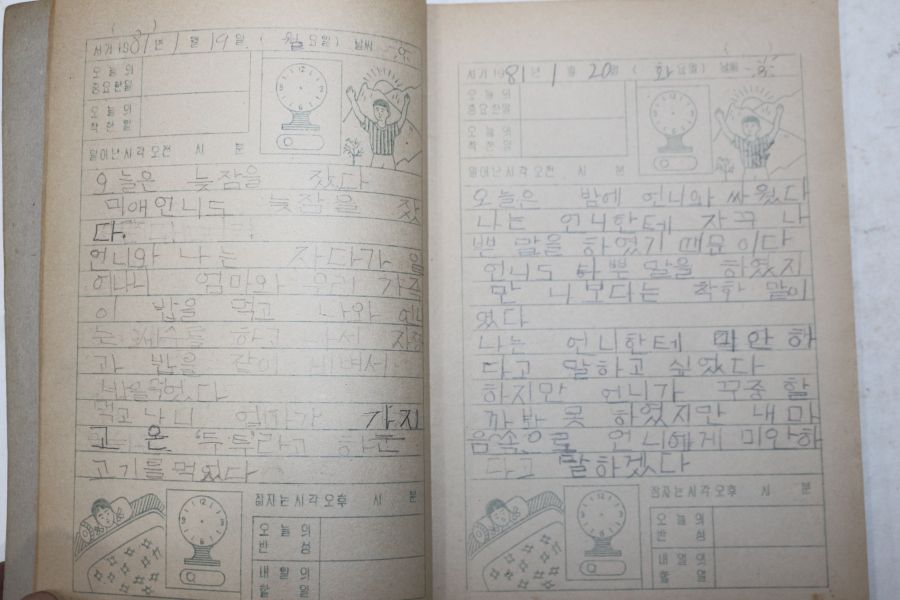 서기 1981년 1월 19일 (월요일) 날씨
오늘의
중요한일
오늘의
착한일
일어난시각오전 시 분
오늘은 늦잠을 잤다
미애언니도 늦잠을 잤
다.
언니와 나는 자다가 일
어나니 엄마와 우리 가족
이 밥을 먹고 나와 언니
는 세수를 하고 나서
과 밥을 같이 비벼서
밥을먹었다
먹고나니 엄마가 가지
고 온 두투라고 하는
고기를먹었다
잠자는시각오후 시 분
오늘의
반성
내일의
할일
서기 1981년 1월 20일 (화요일) 날씨
오늘의
중요한일
오늘의
착한일
일어난시각오전 시 분
오늘은 밤에 언니와 싸웠다
나는 언니한테 자꾸 나
쁜 말을 하였기 때문이다
언니도 나쁘말을 하였지
만 나보다는 착한 말이
었다
나는 언니한테 미안하
다고 말하고 싶었다
하지만 언니가 꾸중할
까봐 못 하였지만 내마
음속으로 언니에게 미안하
다고 말하겠다
잠자는시각오후 시 분
오늘의
반성
내일의
할일